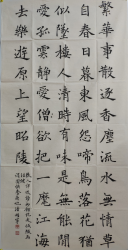 繁華事散逐香塵流水無情草
自春日暮東風怨啼鳥落花猶
似墜樓人清時有味是無能閒
愛孤雲靜愛僧欲把一麾江海
去樂遊原上望昭陵